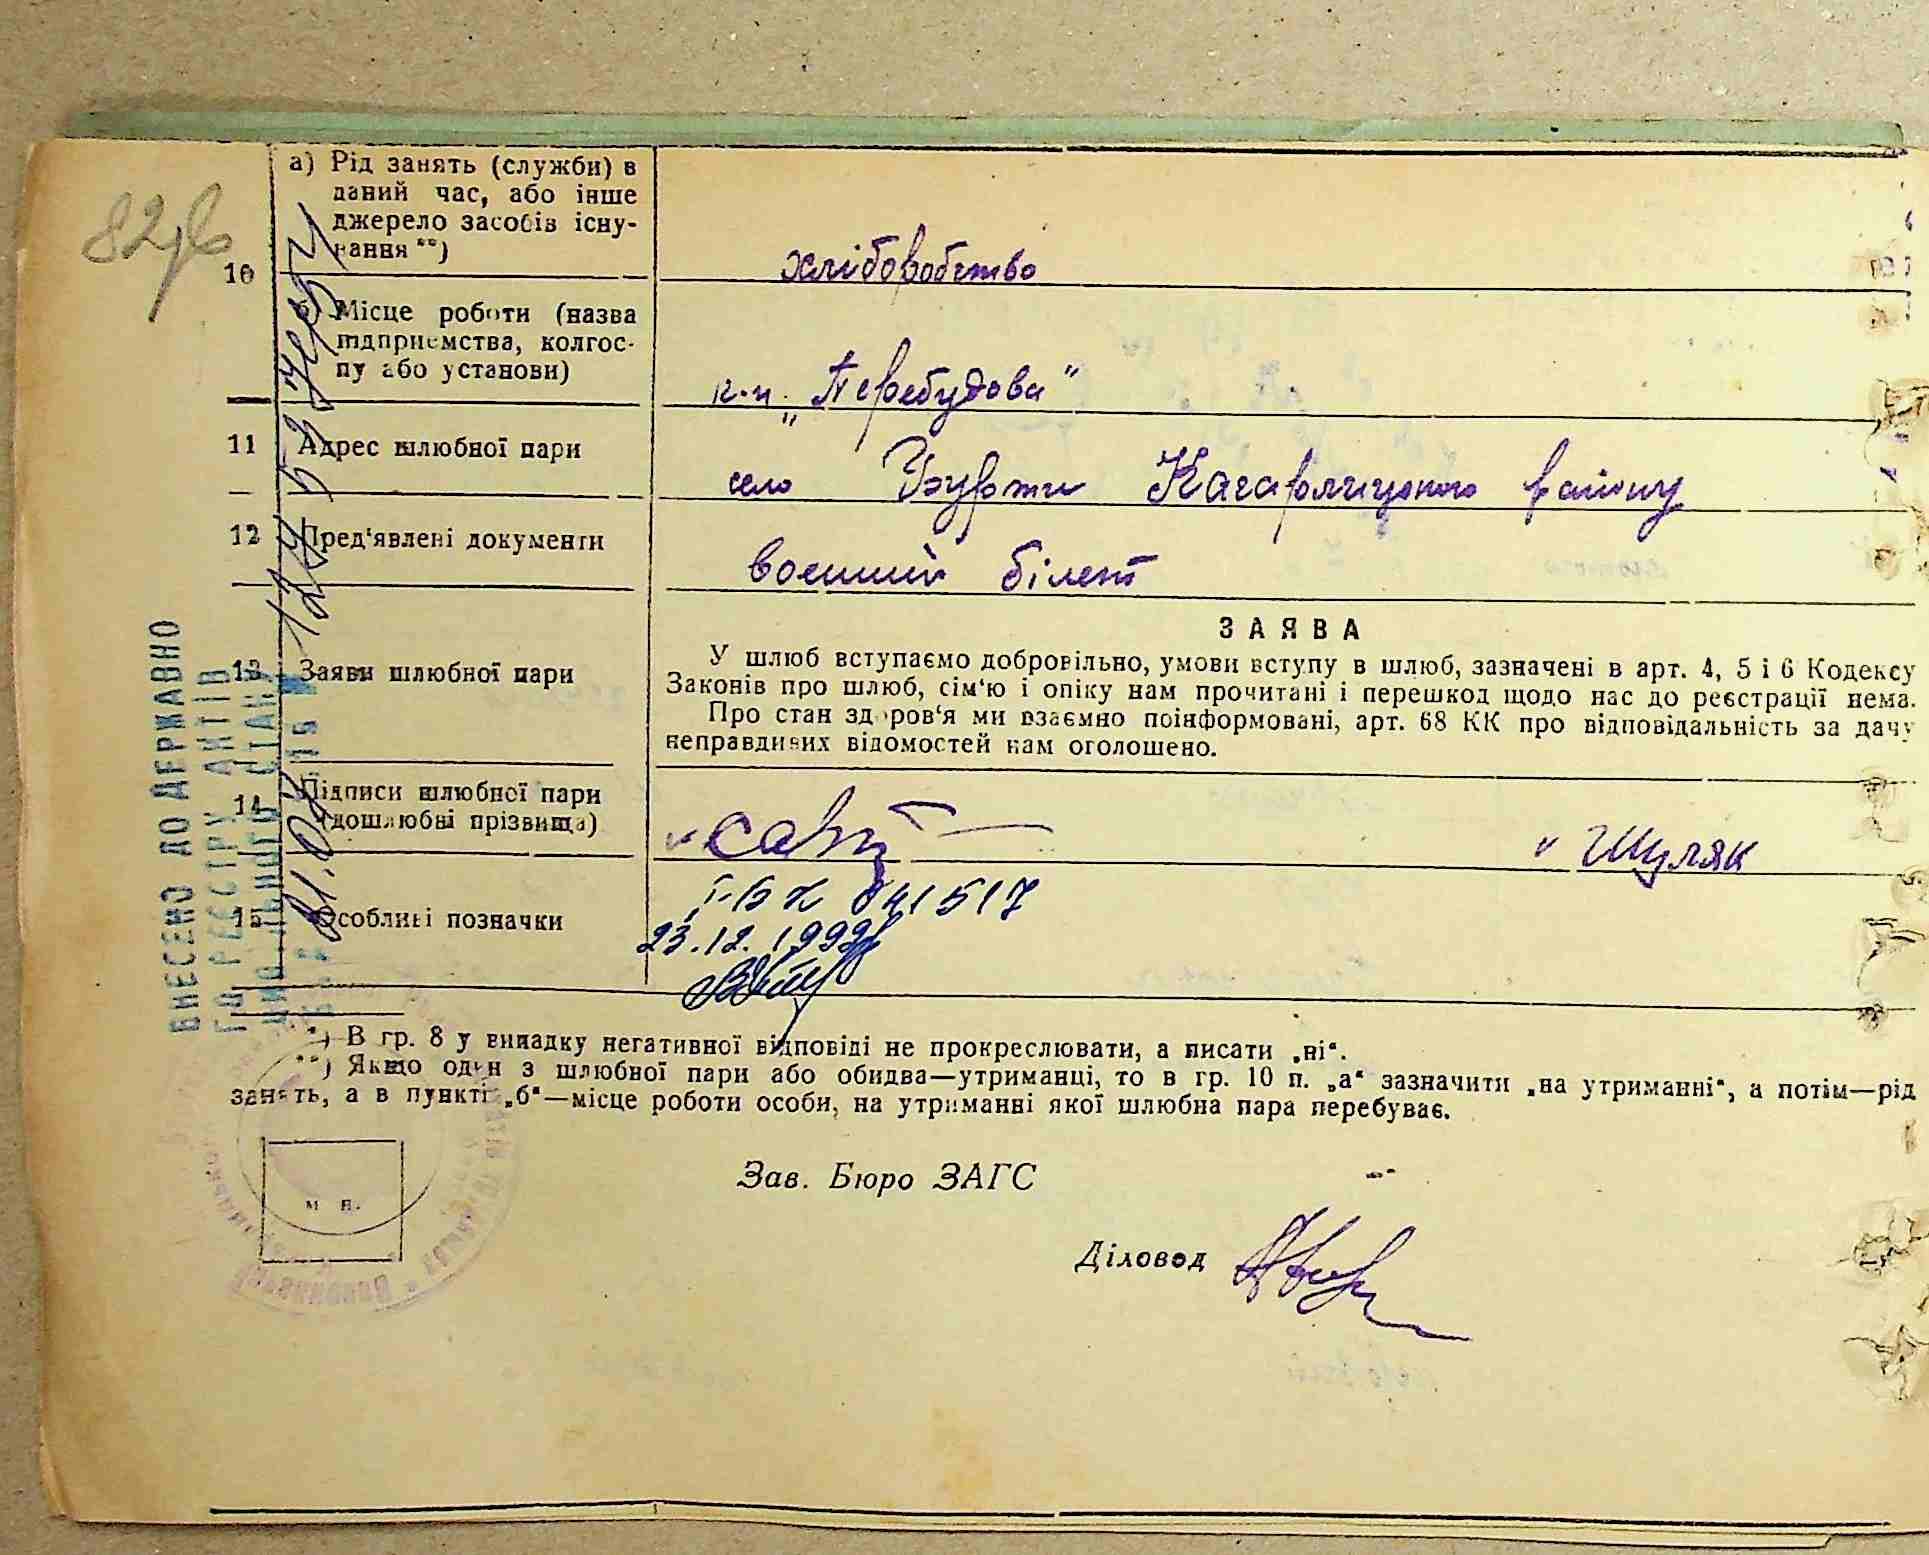 82
а) Рід занять (служби) в
даний час, або інше
джерело засобів існу-
вання **)
10
хліборобство
б) Місце роботи (назва
підприємства, колгос-
пу або установи)
"Перебудова"
11 Адрес шлюбної пари
село Кагарлицького району
12 Пред'явлені документи
воєнний білет
13 Заяви шлюбної пари
ЗАЯВА
У шлюб вступаємо добровільно, умови вступу в шлюб, зазначені в арт. 4, 5 і 6 Кодексу
Законів про шлюб, сім'ю і опіку нам прочитані і перешкод щодо нас до реєстрації нема.
Про стан здоров'я ми взаємно поінформовані, арт. 68 КК про відповідальність за дачу
неправдивих відомостей нам оголошено.
14 Підписи шлюбної пари
(дошлюбні прізвища)
Шуляк
15 Особливі позначки
І-БК 041517
23.12.1992
ВНЕСЕНО ДО ДЕРЖАВНО
ГО РЕЄСТРУ АКТІВ
ЦИВІЛЬНОГО СТАНУ
*) В гр. 8 у випадку негативної відповіді не прокреслювати, а писати „ні“.
**) Якщо один з шлюбної пари або обидва—утриманці, то в гр. 10 п. „а“ зазначити „на утриманні“, а потім—рід
занять, а в пункті „б“—місце роботи особи, на утриманні якої шлюбна пара перебуває.
м п.
Зав. Бюро ЗАГС
Діловод